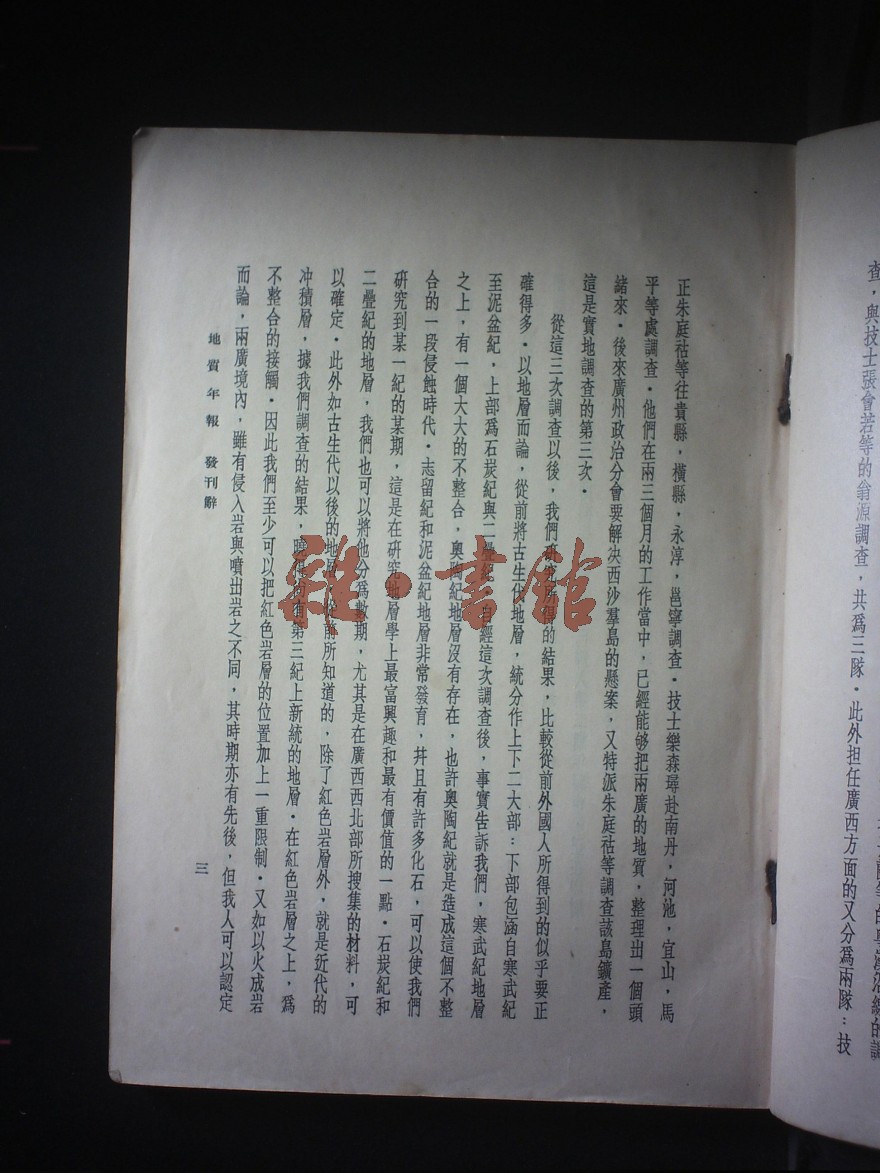 查，與技士張會若等的翁源調查，共爲三隊・此外担任廣西方面的又分爲兩隊：技
正朱庭祜等往貴縣，橫縣，永淳，邕寧調查・技士樂森璕赴南丹，河池，宜山，馬
平等處調查・他們在兩三個月的工作當中，已經能够把兩廣的地質，整理出一個頭
緒來・後來廣州政治分會要解決西沙羣島的懸案，又特派朱庭祜等調查該島鑛產，
這是實地調查的第三次・
從這三次調查以後，我們研究所得的結果，比較從前外國人所得到的似乎要正
確得多・以地層而論，從前將古生代地層，統分作上下二大部：下部包涵自寒武紀
至泥盆紀，上部爲石炭紀與二疊紀・自經這次調查後，事實告訴我們，寒武紀地層
之上，有一個大大的不整合，奧陶紀地層沒有存在，也許奧陶紀就是造成這個不整
合的一段侵蝕時代・志留紀和泥盆紀地層非常發育，幷且有許多化石，可以使我們
研究到某一紀的某期，這是在研究地層學上最富興趣和最有價值的一點・石炭紀和
二疊紀的地層，我們也可以將他分爲數期，尤其是在廣西西北部所搜集的材料，可
以確定・此外如古生代以後的地層，從前所知道的，除了紅色岩層外，就是近代的
冲積層，據我們調查的結果，曉得尚有第三紀上新統的地層・在紅色岩層之上，爲
不整合的接觸・因此我們至少可以把紅色岩層的位置加上一重限制・又如以火成岩
而論，兩廣境內，雖有侵入岩與噴出岩之不同，其時期亦有先後，但我人可以認定
地質年報 發刊辭
三
雜・書館